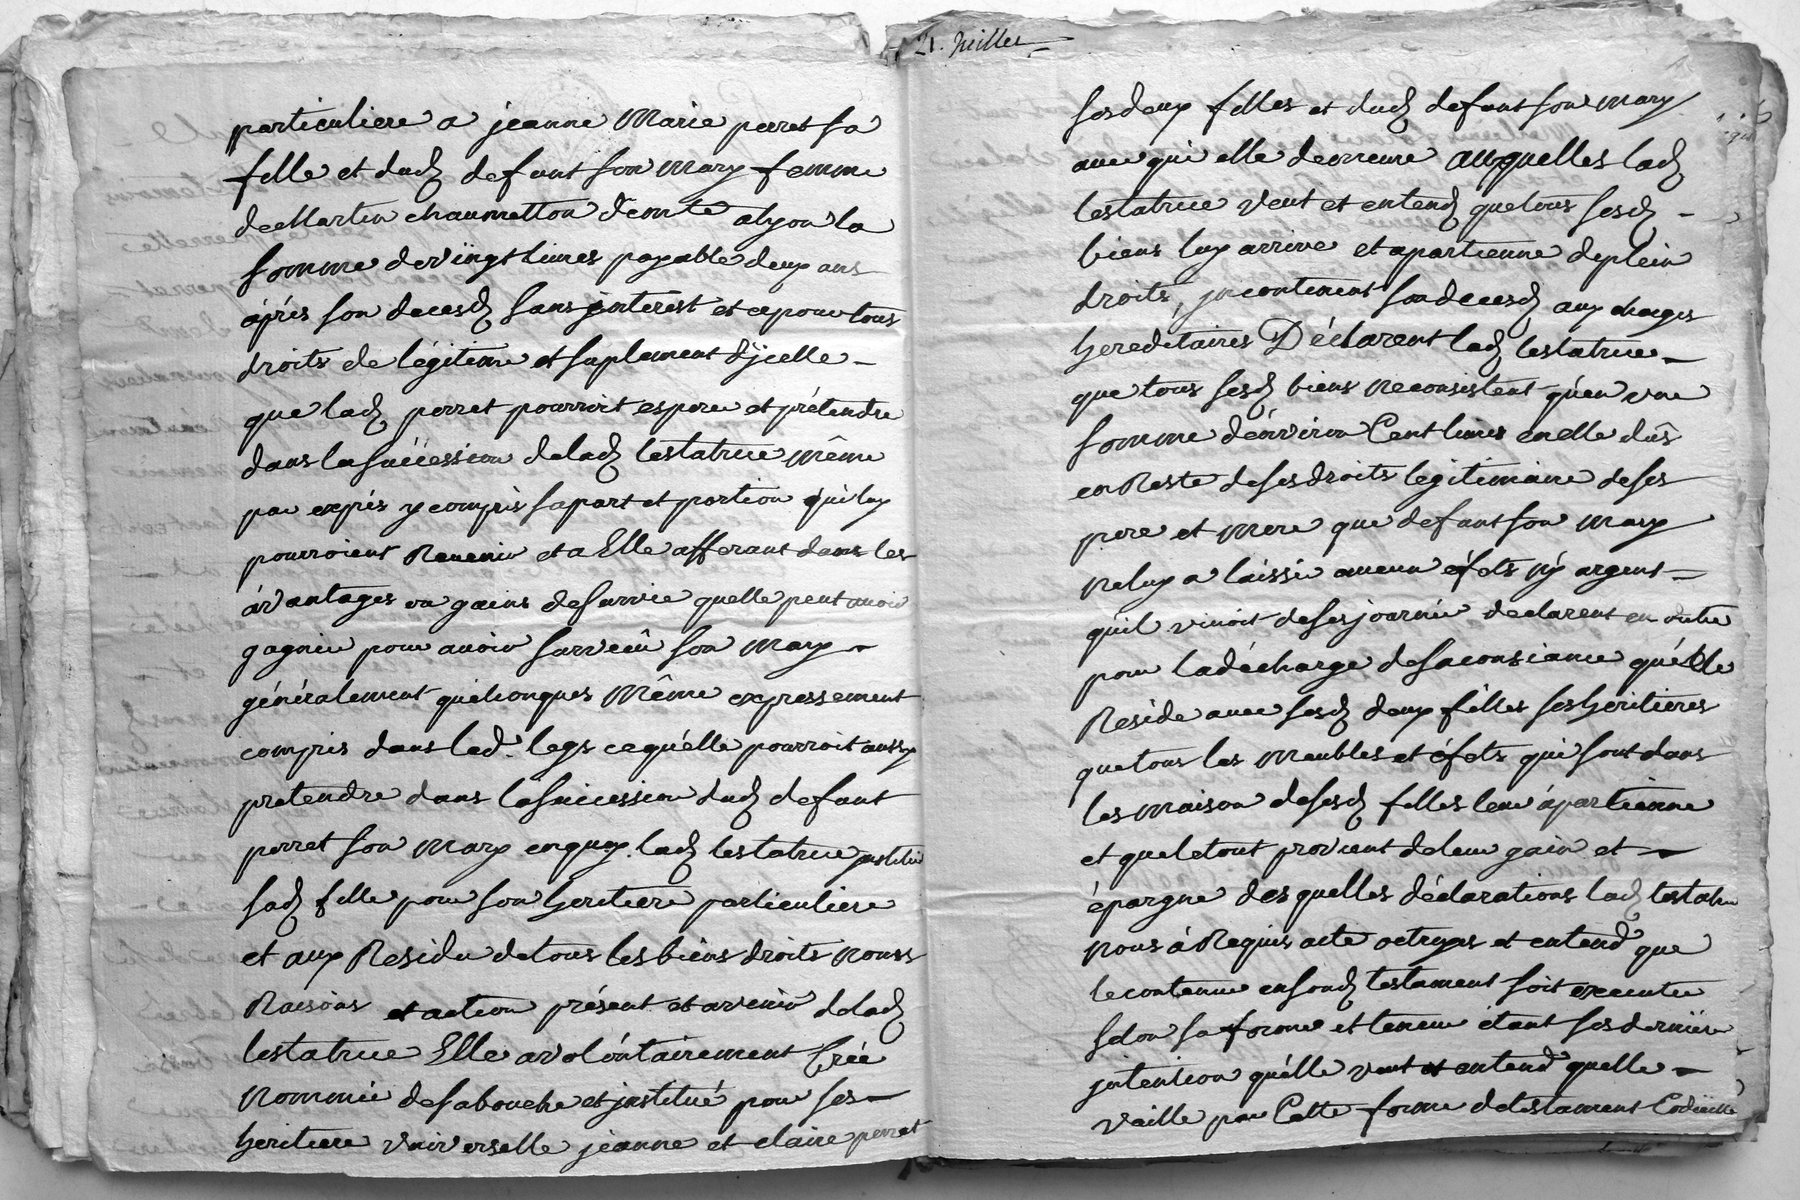 21. Juillet
particuliere a jeanne Marie perret sa
fille et dud defunt son mary femme
de Martin chaumetton demte a lyon la
somme de vingt livres payable deux ans
áprés son decesd sans jnterest et ce pour tous
droits de légiteme et suplement d'jcelle
que lad perret pourroit esperer et prétendre
dans la succession de lad testatrice même
par exprés y compris sa part et portion qui luy
pourroient Revenir et a Elle afferant dans les
ávantages ou gains de survie quelle peut avoir
gagnée pour avoir surveçû son mary
généralement quelconques Même expressement
compris dans lad. legs ce qu'elle pourroit aussy
pretendre dans la succession dud defunt
perret son mary en quoy lad testatrice jnstitue
sad fille pour son heritiere particuliere
et aux Residu de tous les biens droits noms
Raisons et action présent et avenir de lad
testatrice Elle a volóntairement Créé
nommée de sa bouche et jnstitué pour ses
heritiere vniverselle jeanne et claire perret
ses deux filles et dud defunt son mary
avec qui elle demeure auxquelles lad
testatrice veut et entend que tous sesd
biens luy arrive et apartienne de plein
droits, jncontinent son decesd aux charges
hereditaires Déclarent lad testatrice
que tous sesd biens ne consistent qu'en vne
somme d'environ Cent livres en elle dûs
en Reste de ses droits legitimaire de ses
pere et mere que defunt son mary
ne luy a laissé aucun éfets ny argent
qu'il vivoit de ses journée declarent en outre
pour la décharge de sa consiance qu'elle
Reside avec sesd deux filles ses heritieres
que tous les Meubles et éfets qui sont dans
les maison de sesd filles leur ápartienne
et que le tout provient de leur gain et
épargne des quelles déclarations lad testatrice
nous á Requis acte octroyés et entend que
le contenue en sond testament soit executée
selon sa forme et teneur étant ses derniere
jntention qu'elle veut et entend quelle
vaille par Cette forme de testament Codicille